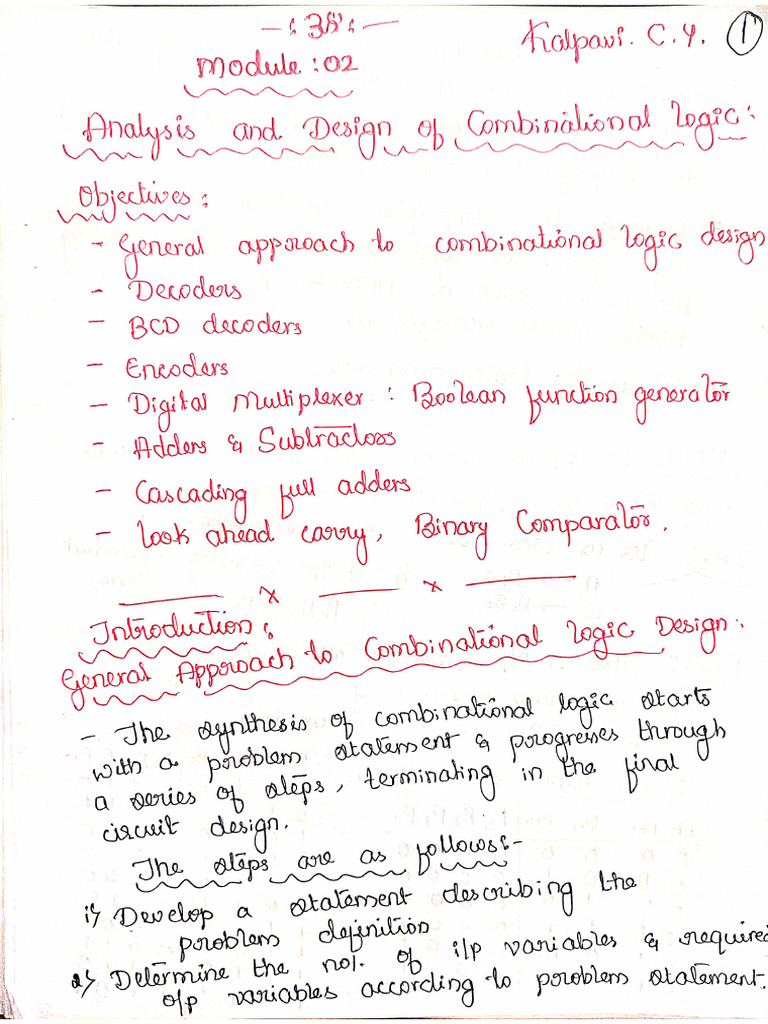 Kalpavi. C.Y. 1
Module : 02
Analysis and Design of Combinational Logic :
Objectives :
- General approach to combinational logic design
- Decoders
- BCD decoders
- Encoders
- Digital Multiplexer : Boolean function generator
- Adders & Subtractors
- Cascading full adders
- Look ahead carry, Binary Comparator.
x x
Introduction :
General Approach to Combinational Logic Design :
- The synthesis of combinational logic starts
with a problem statement & progresses through
a series of steps, terminating in the final
circuit design.
The steps are as follows :-
1) Develop a statement describing the
problem definition
2) Determine the no/. of i/p variables & required
o/p variables according to problem statement.